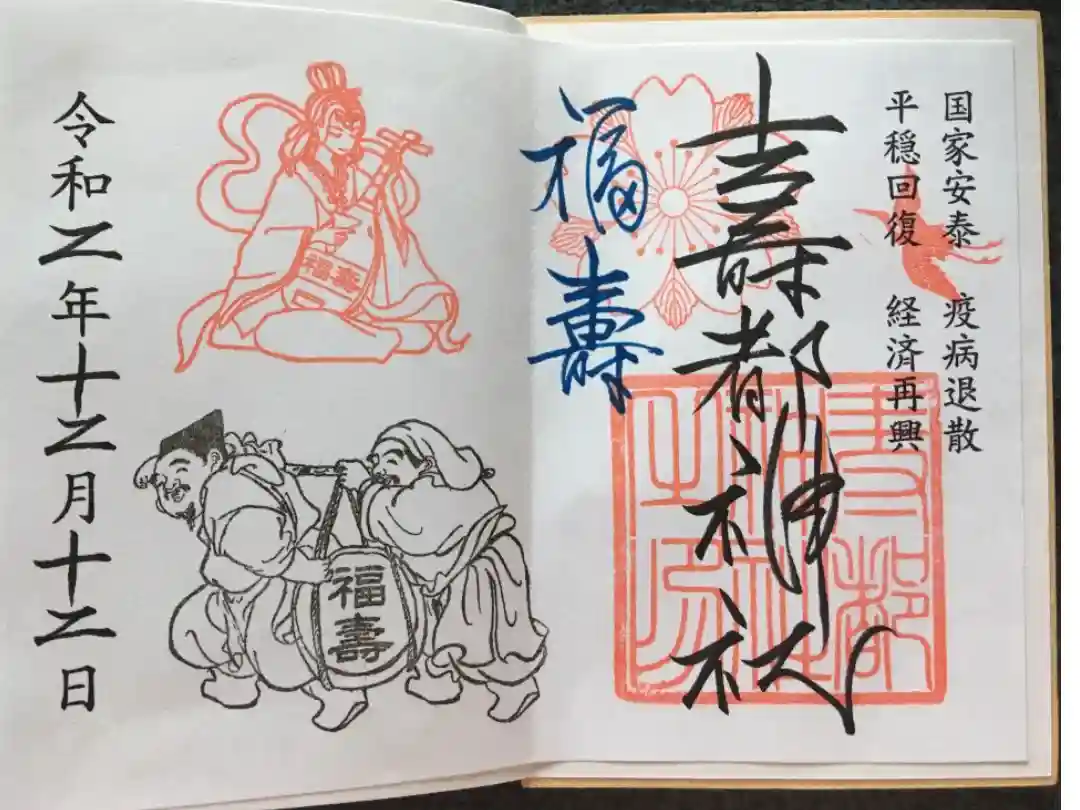 国家安泰 疫病退散
平穏回復 経済再興
壽都神社
壽都
神社
之印
福壽
福壽
福壽
令和二年十二月十二日